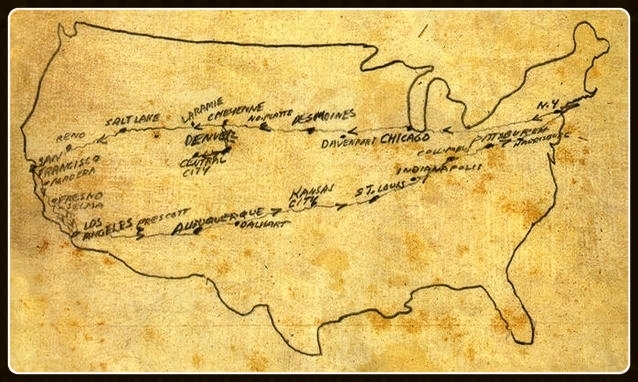 N.Y.
LARAMIE
CHEYENNE
SALT LAKE
NO. PLATTE
DES MOINES
RENO
DENVER
DAVENPORT
CHICAGO
PITTSBURGH
HARRISBURG
COLUMBUS
SAN
FRANCISCO
MADERA
CENTRAL
CITY
INDIANAPOLIS
FRESNO
SELMA
KANSAS
CITY
ST. LOUIS
LOS
ANGELES
PRESCOTT
ALBUQUERQUE
DALHART